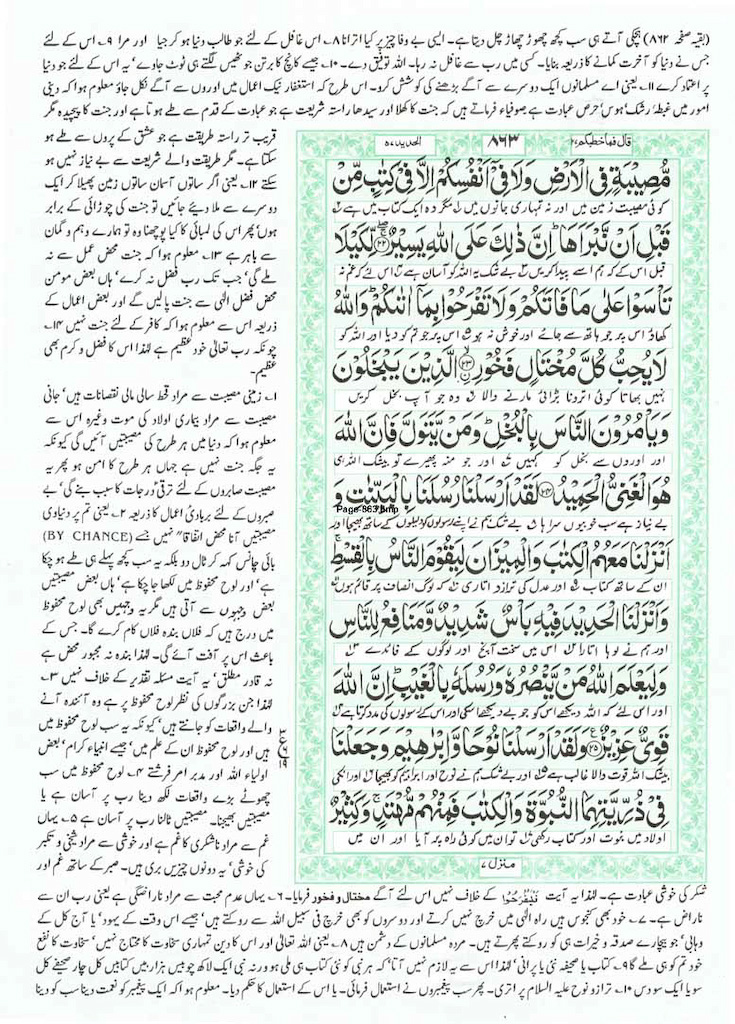 (بقیہ صفحہ ۸۶۲) ہچکی آتے ہی سب کچھ چھوڑ چھاڑ چل دیتا ہے۔ ایسی بے وفا چیز پر کیا اترانا ۸۔ اس غافل کے لئے جو طالب دنیا ہو کر جیا اور مرا ۹۔ اس کے لئے
جس نے دنیا کو آخرت کمانے کا ذریعہ بنایا۔ کسی میں رب سے غافل نہ رہا۔ اللہ توفیق دے۔ ۱۰۔ جیسے کانچ کا برتن جو ٹھیس لگتے ہی ٹوٹ جاوے' یہ اس کے لئے جو دنیا
پر اعتماد کرے ۱۱۔ یعنی اے مسلمانوں ایک دوسرے سے آگے بڑھنے کی کوشش کرو۔ اس طرح کہ استغفار نیک اعمال میں اوروں سے آگے نکل جاؤ معلوم ہوا کہ دینی
امور میں غبطہ' رشک' ہوس' حرص عبادت ہے صوفیاء فرماتے ہیں کہ جنت کا کھلا اور سیدھا راستہ شریعت ہے جو عبادت کے قدم سے طے ہوتا ہے اور جنت کا پیچیدہ مگر
قریب تر راستہ طریقت ہے جو عشق کے پروں سے طے ہو
سکتا ہے۔ مگر طریقت والے شریعت سے بے نیاز نہیں ہو
سکتے ۱۲۔ یعنی اگر ساتوں آسمان ساتوں زمین پھیلا کر ایک
دوسرے سے ملا دیئے جائیں تو جنت کی چوڑائی کے برابر
ہوں' پھر اس کی لمبائی کا کیا پوچھنا وہ تو ہمارے وہم و گمان
سے باہر ہے ۱۳۔ معلوم ہوا کہ جنت محض عمل سے نہ
ملے گی' جب تک رب فضل نہ کرے' ہاں بعض مومن
محض فضل الٰہی سے جنت پالیں گے اور بعض اعمال کے
ذریعہ اس سے معلوم ہوا کہ کافر کے لئے جنت نہیں ۱۴۔
چونکہ رب تعالٰی خود عظیم ہے لہٰذا اس کا فضل و کرم بھی
عظیم۔
۱۔ زمینی مصیبت سے مراد قحط سالی مالی نقصانات ہیں' جانی
مصیبت سے مراد بیماری اولاد کی موت وغیرہ اس سے
معلوم ہوا کہ دنیا میں ہر طرح کی مصیبتیں آئیں گی کیونکہ
یہ جگہ جنت نہیں ہے جہاں ہر طرح کا امن ہو پھر یہ
مصیبت صابروں کے لئے ترقی' درجات کا سبب بنے گی' بے
صبروں کے لئے بربادی' اعمال کا ذریعہ ۲۔ یعنی تم پر دنیاوی
مصیبتیں آنا محض اتفاقا" نہیں جسے (BY CHANCE)
بائی چانس کہہ کر ٹال دو بلکہ یہ سب کچھ پہلے ہی طے ہو چکا
ہے' اور لوح محفوظ میں لکھا جا چکا ہے' ہاں بعض مصیبتیں
بعض وجہوں سے آتی ہیں مگر یہ وجہیں بھی لوح محفوظ
میں درج ہیں کہ فلاں بندہ فلاں کام کرے گا۔ جس کے
باعث اس پر آفت آئے گی۔ لہٰذا بندہ نہ مجبور محض ہے
نہ قادر مطلق' یہ آیت مسئلہ تقدیر کے خلاف نہیں ۳۔
لہٰذا جن بزرگوں کی نظر لوح محفوظ پر ہے وہ آئندہ آنے
والے واقعات کو جانتے ہیں' کیونکہ یہ سب لوح محفوظ میں
ہیں اور لوح محفوظ ان کے علم میں' جیسے انبیاء کرام' بعض
اولیاء اللہ اور مدبر امر فرشتے ۴۔ لوح محفوظ میں سب
چھوٹے بڑے واقعات لکھ دینا رب پر آسان ہے یا
مصیبتیں بھیجنا۔ مصیبتیں ٹالنا رب پر آسان ہے ۵۔ یہاں
غم سے مراد ناشکری کا غم ہے اور خوشی سے مراد شیخی و تکبر
کی خوشی' یہ دونوں چیزیں بری ہیں۔ صبر کے ساتھ غم اور
قال فما خطبکم ۲۷
۸۶۳
الحدید ۵۷
مُّصِيْبَةٍ فِي الْاَرْضِ وَلَا فِيْٓ اَنْفُسِكُمْ اِلَّا فِيْ كِتٰبٍ مِّنْ
کوئی مصیبت زمین میں اور نہ تمہاری جانوں میں مگر وہ ایک کتاب میں ہے
قَبْلِ اَنْ نَّبْرَاَهَا ؕ اِنَّ ذٰلِكَ عَلَى اللّٰهِ يَسِيْرٌ ۲۲ لِّكَيْلَا
قبل اس کے کہ ہم اسے پیدا کریں بے شک یہ اللہ کو آسان ہے اس لئے کہ غم نہ
تَاْسَوْا عَلٰى مَا فَاتَكُمْ وَلَا تَفْرَحُوْا بِمَآ اٰتٰىكُمْ ؕ وَاللّٰهُ
کھاؤ اس پر جو ہاتھ سے جائے اور خوش نہ ہو اس پر جو تم کو دیا اور اللہ کو
لَا يُحِبُّ كُلَّ مُخْتَالٍ فَخُوْرِۙ ۲۳ الَّذِيْنَ يَبْخَلُوْنَ
نہیں بھاتا کوئی اترونا بڑائی مارنے والا وہ جو آپ بخل کریں
وَيَاْمُرُوْنَ النَّاسَ بِالْبُخْلِ ؕ وَمَنْ يَّتَوَلَّ فَاِنَّ اللّٰهَ
اور اوروں سے بخل کو کہیں اور جو منہ پھیرے تو بیشک اللہ ہی
هُوَ الْغَنِيُّ الْحَمِيْدُ ۲۴ لَقَدْ اَرْسَلْنَا رُسُلَنَا بِالْبَيِّنٰتِ وَ
Page-863.bmp
بے نیاز ہے سب خوبیوں سراہا بے شک ہم نے اپنے رسولوں کو دلیلوں کے ساتھ بھیجا اور
اَنْزَلْنَا مَعَهُمُ الْكِتٰبَ وَالْمِيْزَانَ لِيَقُوْمَ النَّاسُ بِالْقِسْطِ ۚ
ان کے ساتھ کتاب اور عدل کی ترازو اتاری کہ لوگ انصاف پر قائم ہوں
وَاَنْزَلْنَا الْحَدِيْدَ فِيْهِ بَاْسٌ شَدِيْدٌ وَّمَنَافِعُ لِلنَّاسِ
اور ہم نے لوہا اتارا اس میں سخت آنچ اور لوگوں کے فائدے
وَلِيَعْلَمَ اللّٰهُ مَنْ يَّنْصُرُهٗ وَرُسُلَهٗ بِالْغَيْبِ ؕ اِنَّ اللّٰهَ
اور اس لئے کہ اللہ دیکھے اس کو جو بے دیکھے اسکی اور اس کے رسولوں کی مدد کرتا ہے
قَوِيٌّ عَزِيْزٌ ۲۵ وَلَقَدْ اَرْسَلْنَا نُوْحًا وَّاِبْرٰهِيْمَ وَجَعَلْنَا
بیشک اللہ قوت والا غالب ہے اور بے شک ہم نے نوح اور ابراہیم کو بھیجا اور انکی
فِيْ ذُرِّيَّتِهِمَا النُّبُوَّةَ وَالْكِتٰبَ فَمِنْهُمْ مُّهْتَدٍ ۚ وَكَثِيْرٌ
اولاد میں نبوت اور کتاب رکھی تو ان میں کوئی راہ پر آیا اور ان میں
منزل ۷
ع
۱۹
شکر کی خوشی عبادت ہے۔ لہٰذا یہ آیت فَلْيَفْرَحُوْا کے خلاف نہیں اس لئے آگے مختال و فخور فرمایا۔ ۶۔ یہاں عدم محبت سے مراد ناراضگی ہے یعنی رب ان سے
ناراض ہے۔ ۷۔ خود بھی کنجوس ہیں راہ الٰہی میں خرچ نہیں کرتے اور دوسروں کو بھی خرچ فی سبیل اللہ سے روکتے ہیں' جیسے اس وقت کے یہود' یا آج کل کے
وہابی' جو بیچارے صدقہ و خیرات ہی کو روکتے پھرتے ہیں۔ مردہ مسلمانوں کے دشمن ہیں ۸۔ یعنی اللہ تعالٰی اور اس کا دین تمہاری سخاوت کا محتاج نہیں' سخاوت کا نفع
خود تم کو ہی ملے گا ۹۔ کتاب یا صحیفہ نئی یا پرانی' لہٰذا اس سے یہ لازم نہیں آتا' کہ ہر نبی کو نئی کتاب ہی ملی ہو ورنہ نبی ایک لاکھ چوبیس ہزار ہیں کتابیں کل چار صحیفے کل
سو یا ایک سو دس ۱۰۔ ترازو نوح علیہ السلام پر اتری۔ پھر سب پیغمبروں نے استعمال فرمائی۔ یا اس کے استعمال کا حکم دیا۔ معلوم ہوا کہ ایک پیغمبر کو نعمت دینا سب کو دینا